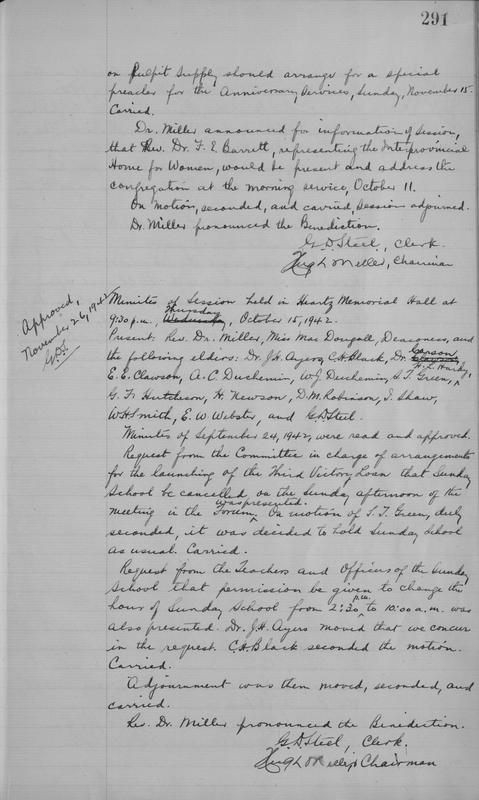 291
on Pulpit Supply should arrange for a special
preacher for the Anniversary Services, Sunday, November 15.
Carried.
Dr. Miller announced for information of Session,
that Rev. Dr. F. E. Barrett, representing the Interprovincial
Home for Women, would be present and address the
congregation at the morning service, October 11.
On motion, seconded, and carried, Session adjourned.
Dr. Miller pronounced the Benediction.
G.D. Steel, Clerk.
Hugh Miller, Chairman
Approved,
November 26, 1942
G.D.S.
Minutes of Session held in Heartz Memorial Hall at
Thursday
9:30 p.m., Wednesday, October 15, 1942.
Present: Rev. Dr. Miller, Miss MacDougall, Deaconess, and
the following elders: Dr. J.H. Ayers, C.H. Black, Dr. Carson
H.L. Hardy,
E.E. Clawson, A.C. Duchemin, W.J. Duchemin, S.T. Green,
G.F. Hutcheson, H. Newson, D.M. Robinson, I. Shaw,
W.H. Smith, E.W. Webster, and G.D. Steel.
Minutes of September 24, 1942, were read and approved.
Request from the Committee in charge of arrangements
for the launching of the Third Victory Loan that Sunday
School be cancelled on the Sunday afternoon of the
was presented.
meeting in the Forum. On motion of S.T. Green, duly
seconded, it was decided to hold Sunday School
as usual. Carried.
Request from the Teachers and Officers of the Sunday
School that permission be given to change the
hour of Sunday School from 2:30 p.m. to 10:00 a.m. was
also presented. Dr. J.H. Ayers moved that we concur
in the request. C.H. Black seconded the motion.
Carried.
Adjournment was then moved, seconded, and
carried.
Rev. Dr. Miller pronounced the Benediction.
G.D. Steel, Clerk.
Hugh Miller, Chairman